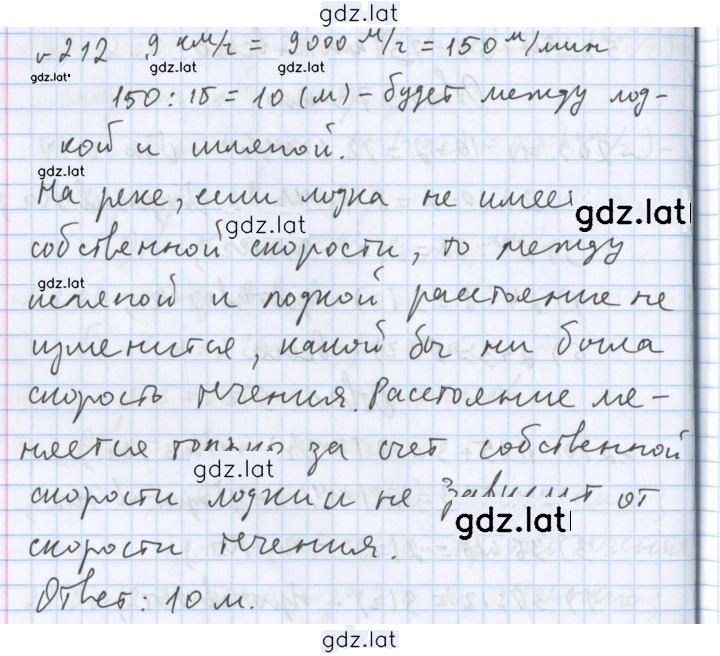 gdz.lat
№212 9 км/г = 9000 м/г = 150 м/мин
gdz.lat gdz.lat gdz.lat
150 : 15 = 10 (м) – будет между лод-
кой и шляпой.
gdz.lat
На реке, если лодка не имеет
gdz.lat gdz.lat
собственной скорости, то между
gdz.lat
шляпой и лодкой расстояние не
изменится, какой бы ни была
скорость течения. Расстояние ме-
няется только за счет собственной
gdz.lat
скорости лодки и не зависит от
gdz.lat
скорости течения.
Ответ: 10 м.
gdz.lat